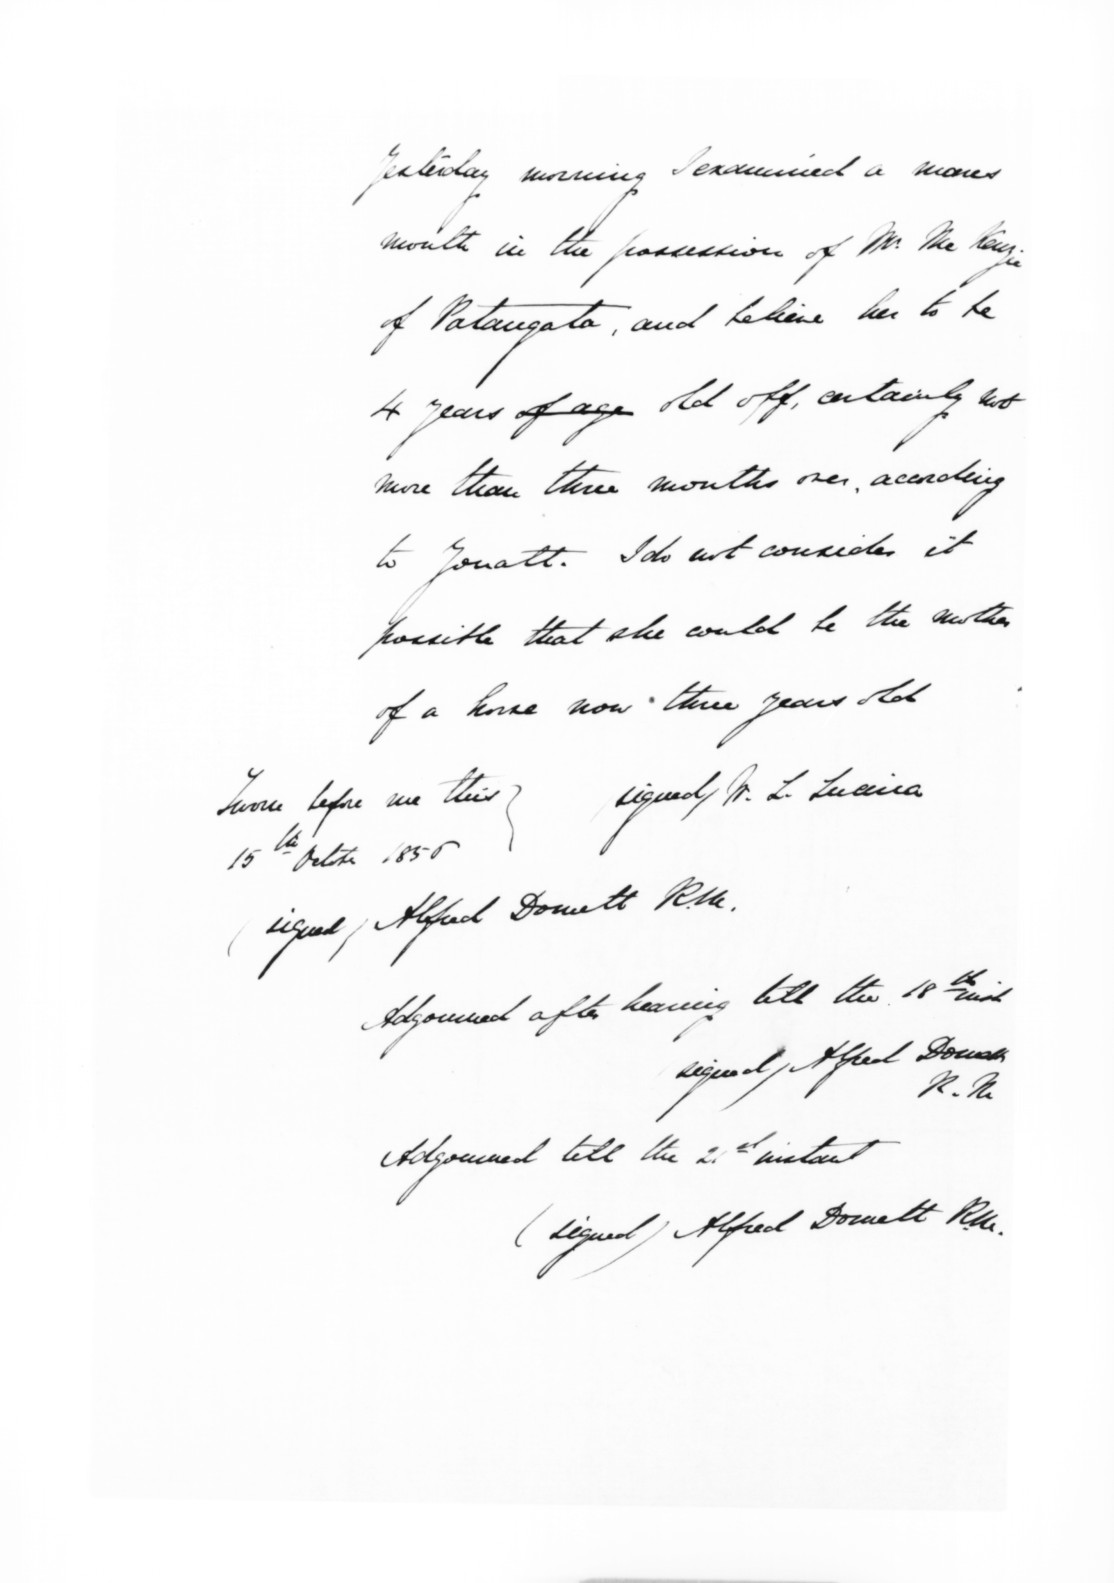 Yesterday morning I examined a mares
mouth in the possession of Mr. McKenzie
of Patangata, and believe her to be
4 years of age old off, certainly not
more than three months over, according
to Youatt. I do not consider it
possible that she could be the mother
of a horse now three years old
Sworn before me this signed) W. L.
15th October 185
(signed) Alfred Domett R.M.
Adjourned after hearing till the 18th inst
signed) Alfred Domett
R. M
Adjourned till the 21st instant
(signed) Alfred Domett R.M.